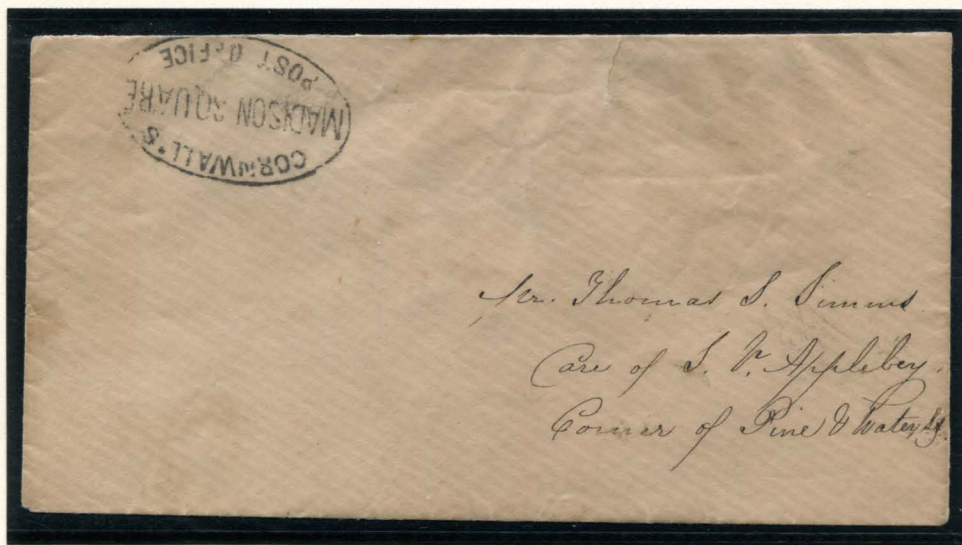 CORNWALL'S
MADISON SQUARE
POST OFFICE
Mr. Thomas S. Simms
Care of S. V. Appleby.
Corner of Pine & Water Sts.